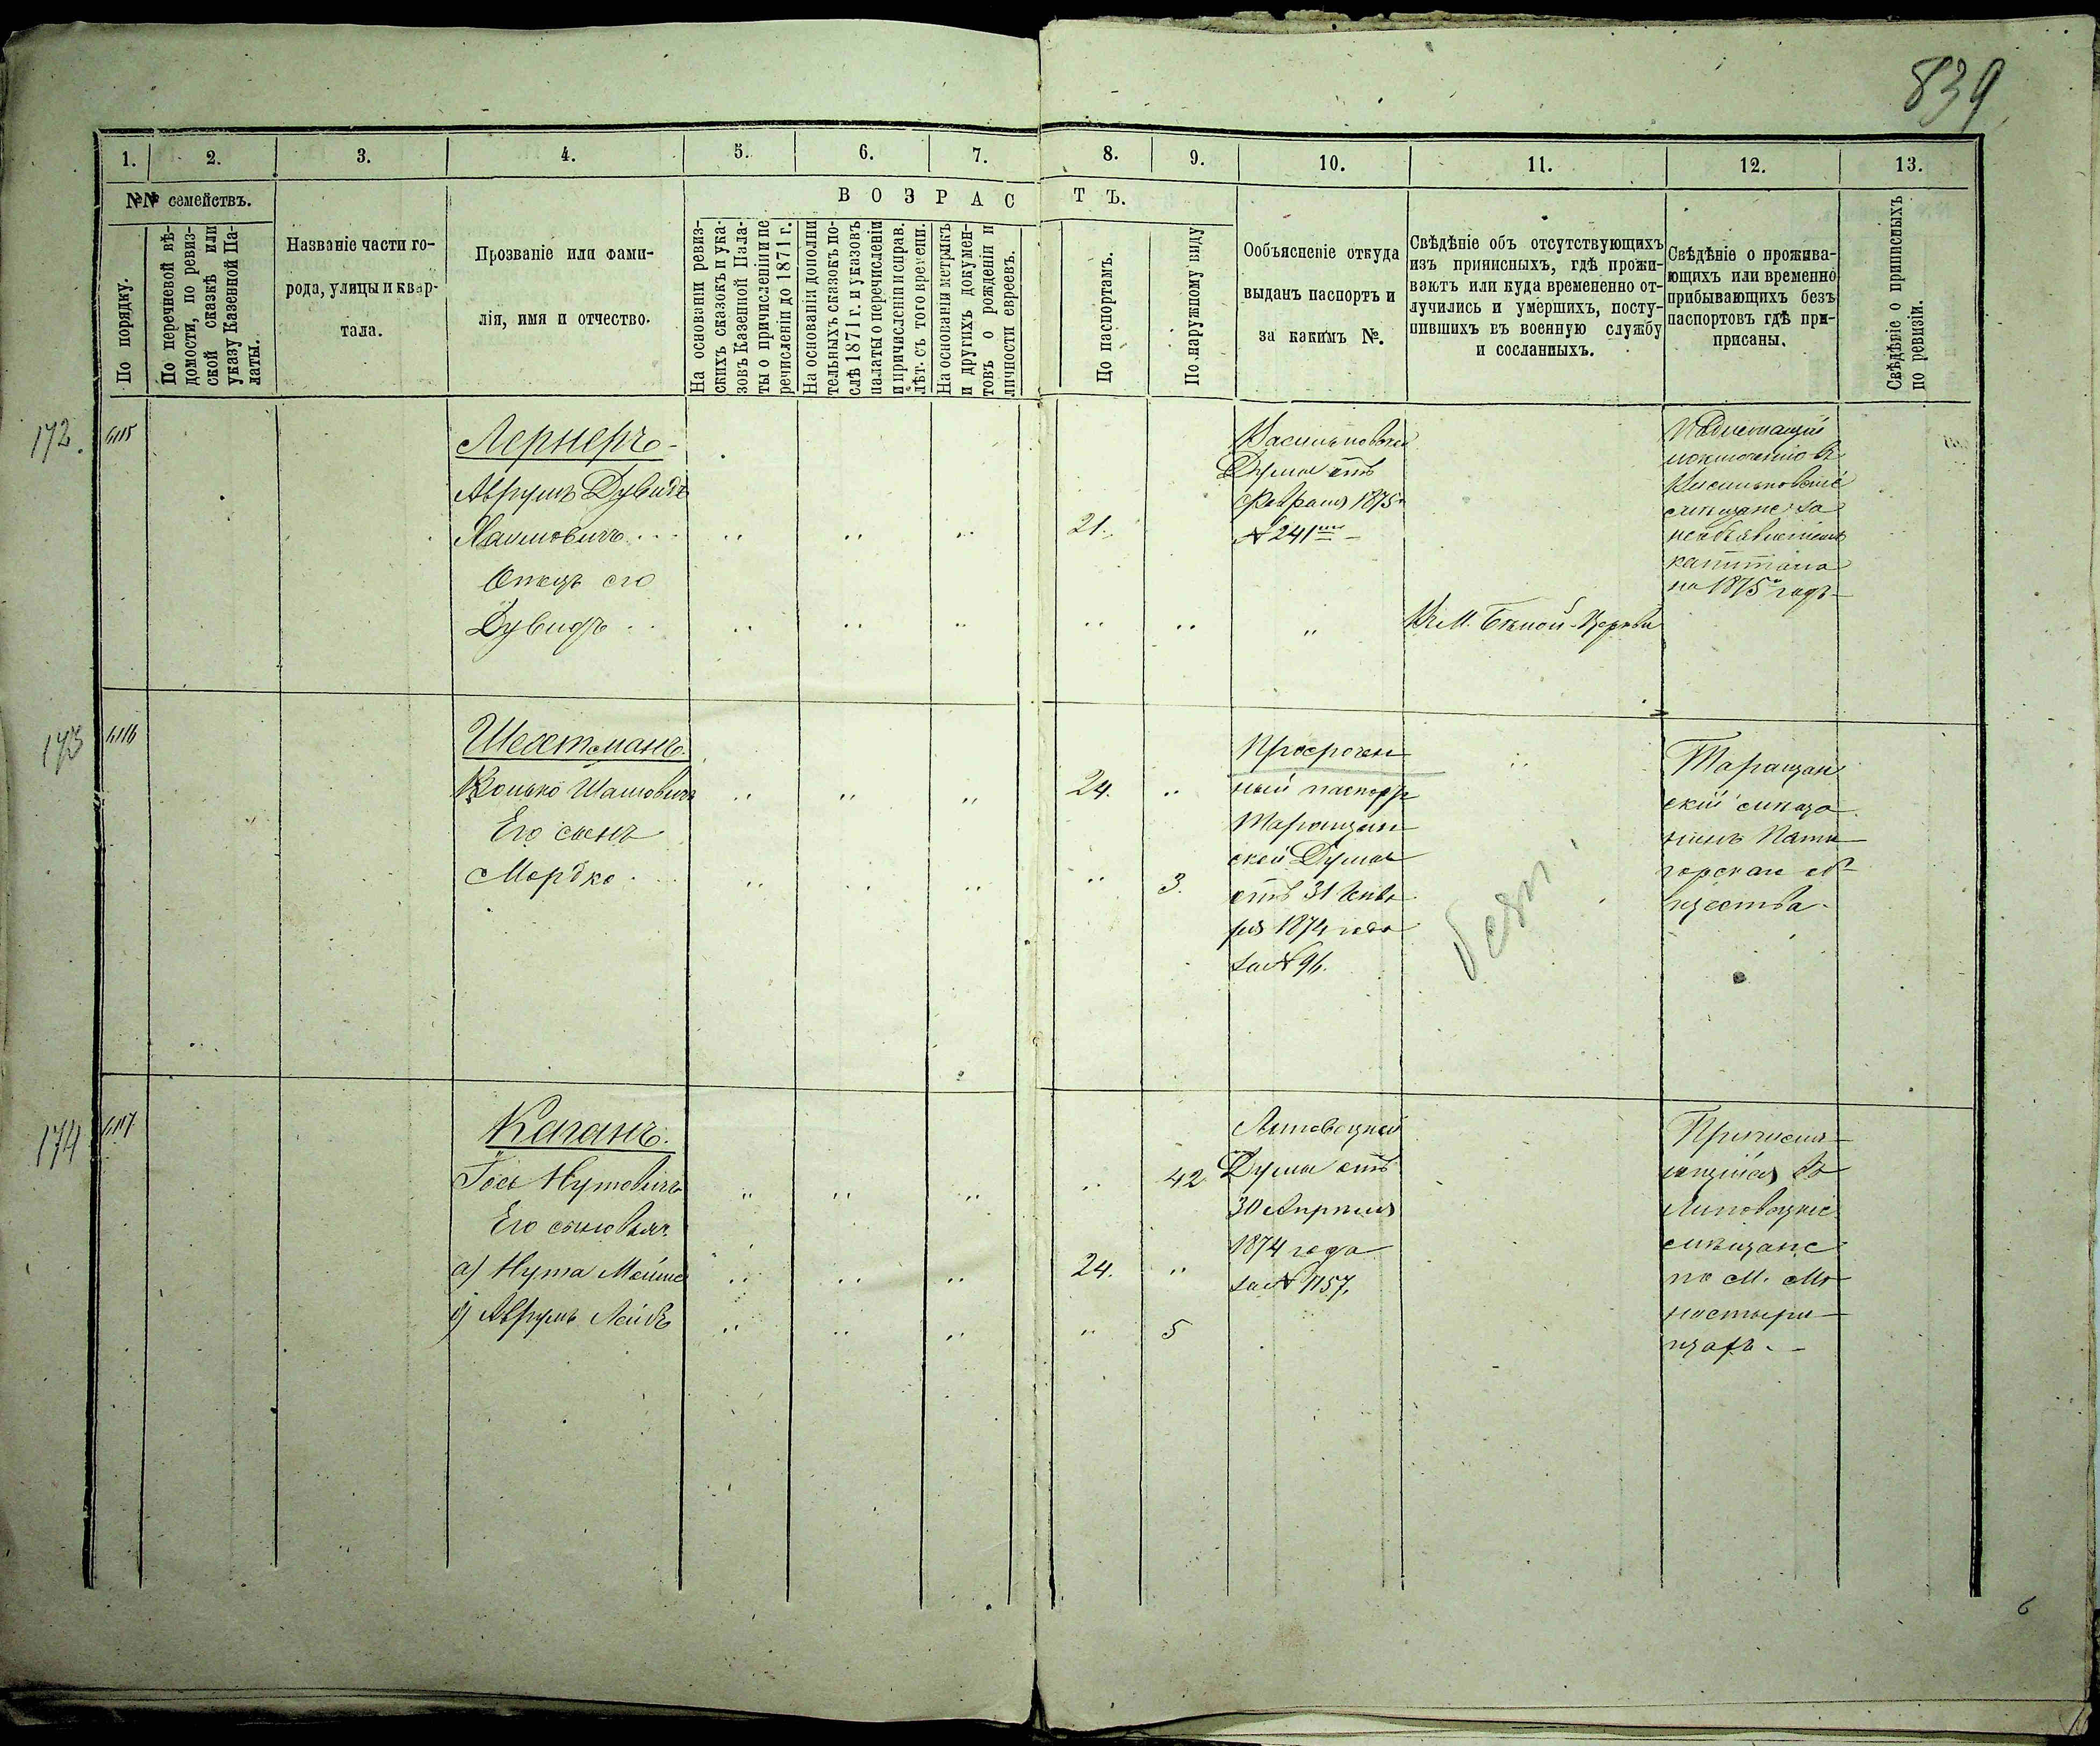 839
1. 2. 3. 4. 5. 6. 7. 8. 9. 10. 11. 12. 13.
№№ семействъ.
По порядку.
По перечневой вѣ-
домости, по ревиз-
ской сказкѣ или
указу Казенной Па-
латы.
Названіе части го-
рода, улицы и квар-
тала.
Прозваніе или фами-
лія, имя и отчество.
ВОЗРАСТЪ.
На основаніи ревиз-
скихъ сказокъ и ука-
зовъ Казенной Пала-
ты о причисленіи и пе
речисленіи до 1871 г.
На основаніи дополни
тельныхъ сказокъ по-
слѣ 1871 г. и указовъ
палаты о перечисленіи
и причисленіи и справ.
лѣт. съ того времени.
На основаніи метрикъ
и другихъ докумен-
товъ о рожденіи и
личности евреевъ.
По паспортамъ.
По наружному виду
Ообъясненіе откуда
выданъ паспортъ и
за какимъ №.
Свѣдѣніе объ отсутствующихъ
изъ приписныхъ, гдѣ прожи-
ваютъ или куда времененно от-
лучились и умершихъ, посту-
пившихъ въ военную службу
и сосланныхъ.
Свѣдѣніе о прожива-
ющихъ или временно
прибывающихъ безъ
паспортовъ гдѣ при-
присаны.
Свѣдѣніе о приписныхъ
по ревизіи.
172. 6115
Лернеръ
Аврумъ Дувидъ
Хаимовичъ 21.
Отецъ его
Дувидъ
Васильковской
Думы отъ
Февраля 1875 г
№ 241
Въ М. Бѣлой-Церкви
Подлежащій
исключенію въ
Васильковскіе
мѣщане за
необъявленіемъ
капитала
на 1875 годъ
173 6116
Шехтманъ.
Конько Шаиовичъ 24.
Его сынъ
Мордко 3.
Просрочен
ный паспортъ
Таращан
ской Думы
отъ 31 Генва
ря 1874 года
за № 96.
Таращан
скій мѣща
нинъ Пяти
горскаго об
щества.
174 6117
Каганъ.
Іось Нутовичъ 42
Его сыновья:
а) Нута Мойше 24.
б) Аврумъ Лейбъ 5
Липовецкой
Думы отъ
30 Апрѣля
1874 года
за № 1157.
Приписыв
ющійся въ
Липовецкіе
мѣщане
по М. Мо
настыри
щахъ.
6